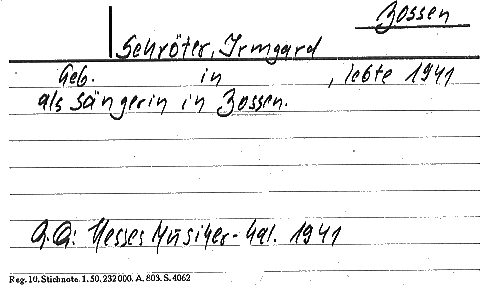 Zossen
Schröter, Irmgard
Geb. in , lebte 1941
als Sängerin in Zossen.
Q.Q: Hesses Musiker-Kal. 1941
Reg. 10. Stichnote. 1. 50. 232000. A. 803. S. 4062